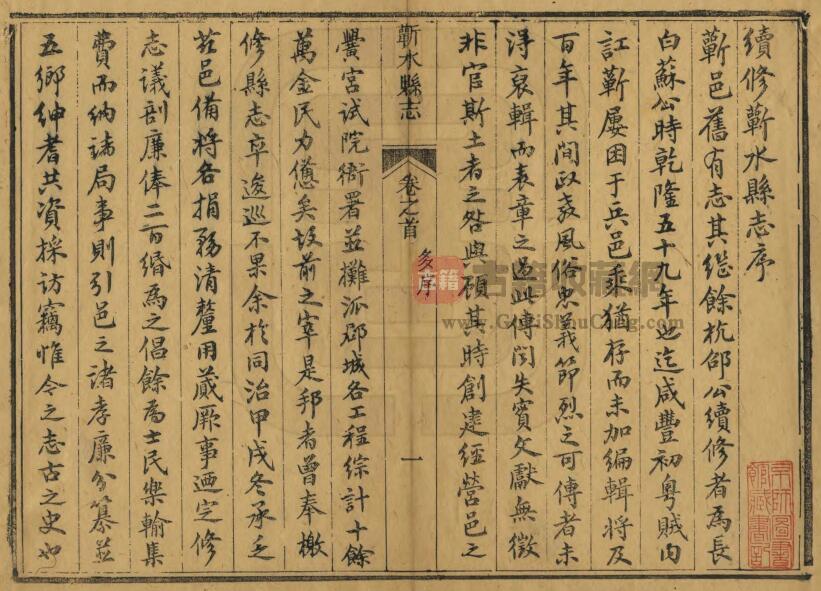 續修蘄水縣志序
蘄邑舊有志其繼餘杭邵公續修者爲長
白蘇公時乾隆五十九年也迄咸豐初粤賊内
訌蘄屢困于兵邑乘猶存而未加編輯將及
百年其間政教風俗忠義節烈之可傳者未
淂裒輯而表章之過此傳聞失實文獻無徵
非官斯土者之咎與顧其時創建經營邑之
蘄水縣志
卷之首
多序
一
黌宮試院衙署並攤派郡城各工程綜計十餘
萬金民力憊矣故前之宰是邦者曾奉檄
修縣志卒逡巡不果余於同治甲戌冬承乏
茲邑備將各捐務清釐用蕆厥事迺定修
志議剖廉俸二百緡爲之倡餘爲士民樂輸集
費而納諸局事則引邑之諸孝廉分纂並
五鄉紳耆共資採訪竊惟今之志古之史也
古籍收藏網
www.GuJiShouCang.com
古籍
京師圖書
館藏書記